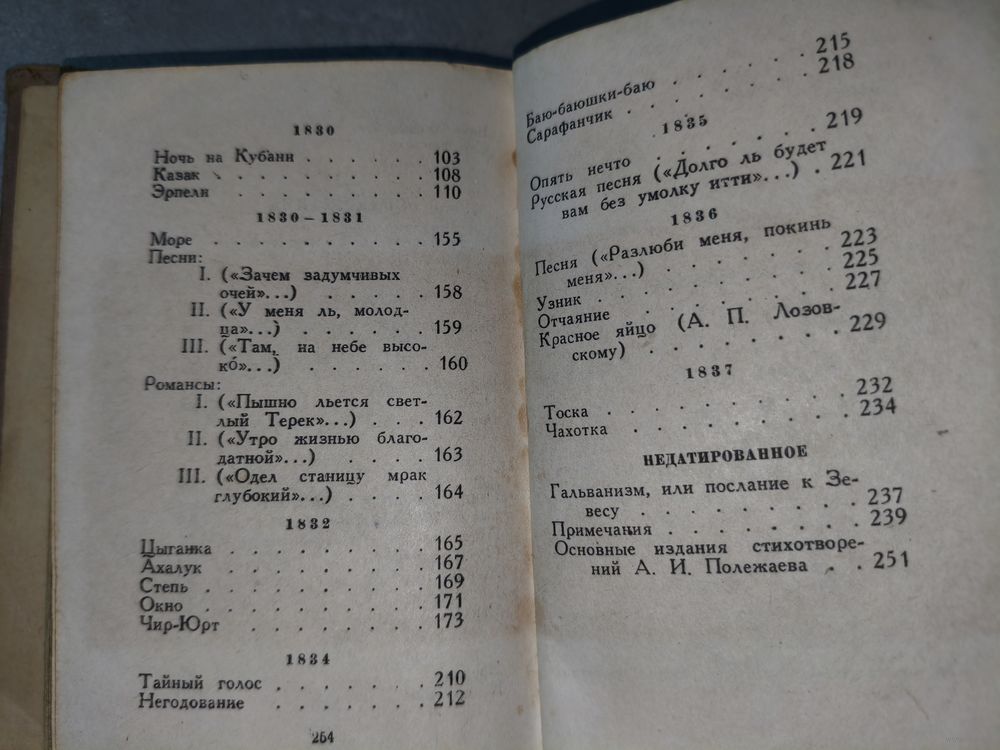 1830
Ночь на Кубани . . . . . . . 103
Казак . . . . . . . . . . . 108
Эрпели . . . . . . . . . . 110
1830 – 1831
Море . . . . . . . . . . 155
Песни:
I. («Зачем задумчивых
очей»...) . . . . . . 158
II. («У меня ль, молод-
ца»...) . . . . . . . 159
III. («Там, на небе высо-
ко́»...) . . . . . . 160
Романсы:
I. («Пышно льется свет-
лый Терек»...) . . . 162
II. («Утро жизнью благо-
датной»...) . . . . 163
III. («Одел станицу мрак
глубокий»...) . . . . 164
1832
Цыганка . . . . . . . . . 165
Ахалук . . . . . . . . . 167
Степь . . . . . . . . . . 169
Окно . . . . . . . . . . 171
Чир-Юрт . . . . . . . . 173
1834
Тайный голос . . . . . . . 210
Негодование . . . . . . . 212
254
Баю-баюшки-баю . . . . . . 215
Сарафанчик . . . . . . . 218
1835
Опять нечто . . . . . . . 219
Русская песня («Долго ль будет
вам без умолку итти»...) . 221
1836
Песня («Разлюби меня, покинь
меня»...) . . . . . . . 223
Узник . . . . . . . . . 225
Отчаяние . . . . . . . . 227
Красное яйцо (А. П. Лозов-
скому) . . . . . . . . 229
1837
Тоска . . . . . . . . . 232
Чахотка . . . . . . . . 234
НЕДАТИРОВАННОЕ
Гальванизм, или послание к Зе-
весу . . . . . . . . . 237
Примечания . . . . . . . 239
Основные издания стихотворе-
ний А. И. Полежаева . . 251